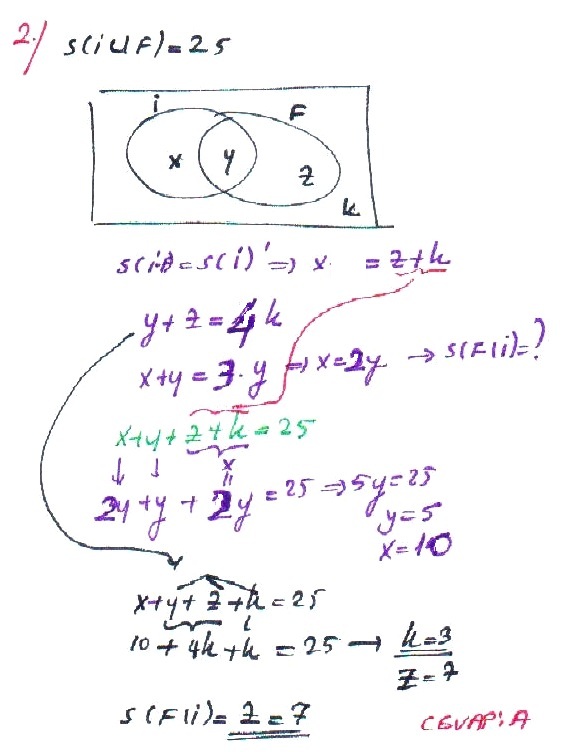 2./ s(i∪F)=25
i F
x y z
k
s(i-F)=s(i)' ⇒ x = z+k
y+z=4k
x+y=3·y ⇒ x=2y → s(F\i)=?
x+y+z+k=25
x
2y+y+2y=25 ⇒ 5y=25
y=5
x=10
x+y+z+k=25
10+4k+k=25 → k=3
z=7
s(F\i)=z=7 CEVAP:A